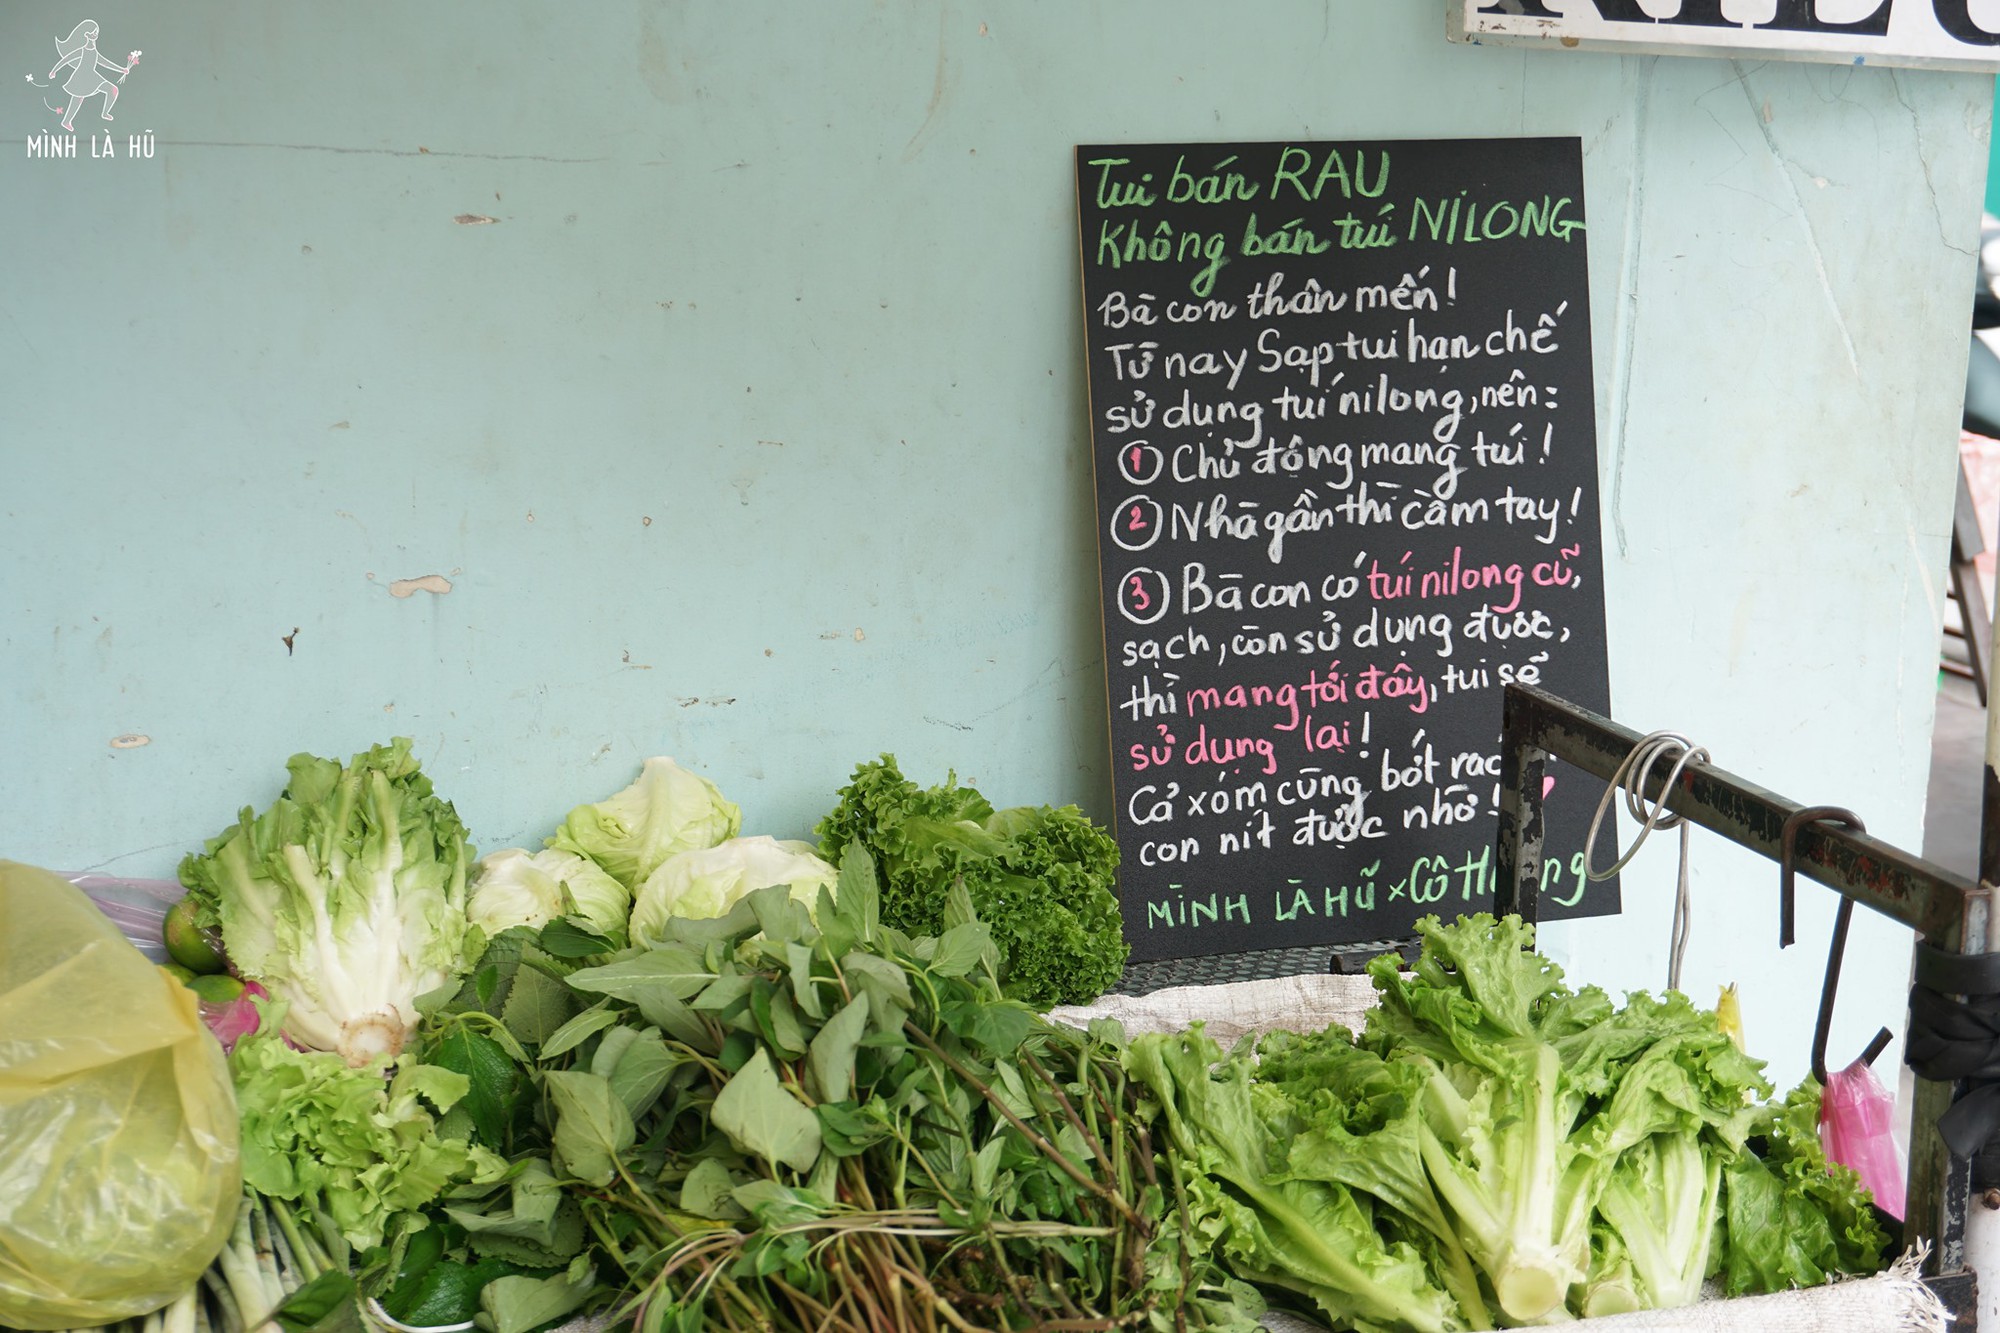 MÌNH LÀ HŨ
Tui bán RAU
Không bán túi NILONG
Bà con thân mến!
Từ nay Sạp tui hạn chế
sử dụng túi nilong, nên:
1 Chủ động mang túi!
2 Nhà gần thì cầm tay!
3 Bà con có túi nilong cũ,
sạch, còn sử dụng được,
thì mang tới đây, tui sẽ
sử dụng lại!
Cả xóm cùng bớt rác
con nít được nhờ!
MÌNH LÀ HŨ x Cô